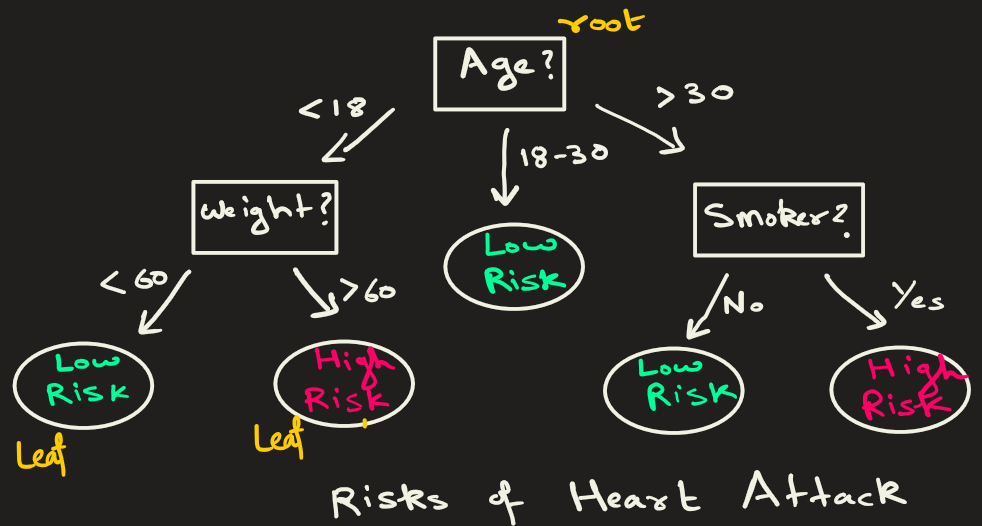 root
Age?
<18
18-30
>30
Weight?
Smoker?
Low
Risk
<60
>60
No
Yes
Low
Risk
High
Risk
Low
Risk
High
Risk
Leaf
Leaf
Risks of Heart Attack